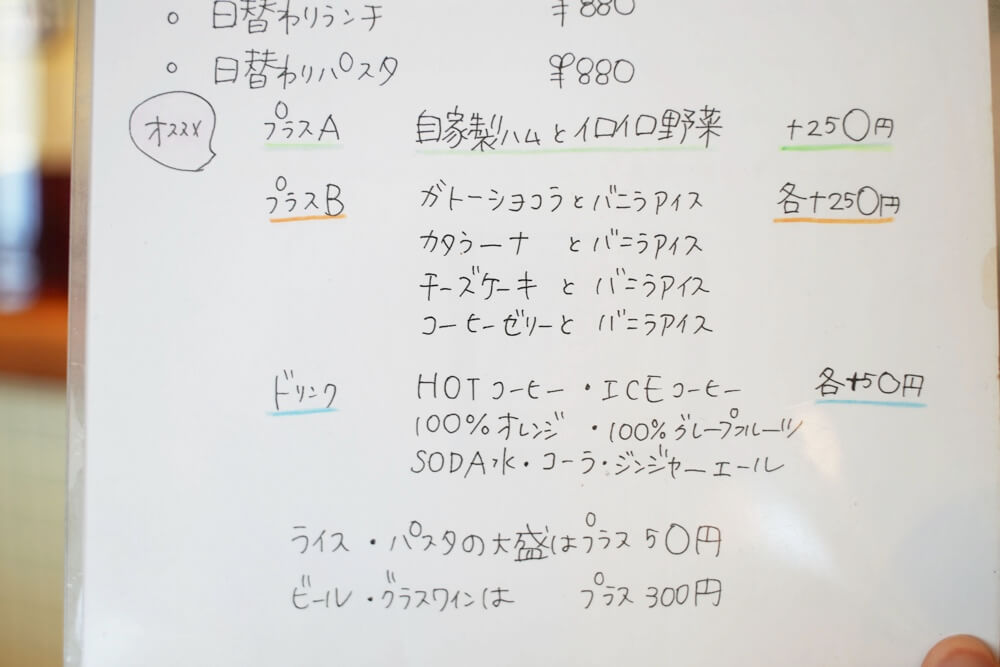 ○ 日替わりランチ ¥880
○ 日替わりパスタ ¥880
オススメ プラスA 自家製ハムとイロイロ野菜 +250円
プラスB ガトーショコラとバニラアイス 各+250円
カタラーナ とバニラアイス
チーズケーキ と バニラアイス
コーヒーゼリーと バニラアイス
ドリンク HOTコーヒー・ICEコーヒー 各+50円
100%オレンジ ・100%グレープフルーツ
SODA水・コーラ・ジンジャーエール
ライス・パスタの大盛はプラス50円
ビール・グラスワインは プラス300円